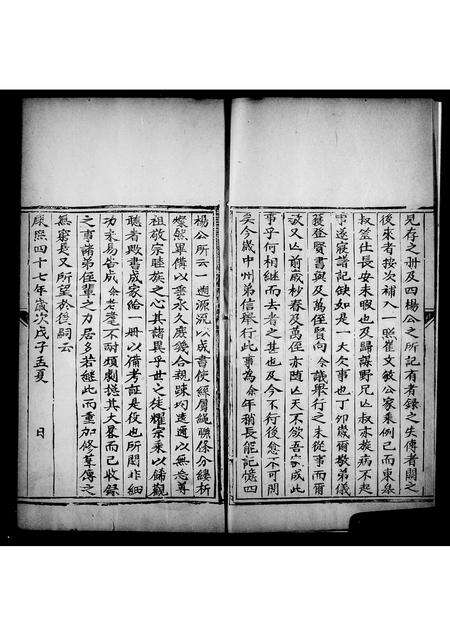 見存之冊及四楊公之所記有者錄之失傳者闕之
後來者按次補入一照崔文敏公家乘例已而東
叔筮仕長安未暇也及歸謀野兄亡叔亦族病不起
事遂寢譜記缺如是一大欠事也丁卯歲爾敬弟儀
登賢書與及萬侄賢向余議舉行之未從事而爾
敬又亡前歲杪春及萬侄亦隨亡天不欲吾宗成此
事乎何相繼而去者之甚也及今不行後愈不可問
矣今歲中州弟信舉行此事為余年稍長能記憶四
楊公所云一遡源流以成書使經層繩聯係分縷析
燦然畢備以垂永久庶幾合親疎均遠邇以無忘尊
祖敬宗睦族之心其諸異乎世之徒耀宗乘以飾觀
聽者歟書成家給一冊以備考証是役也所關非細
功未易告成余老耄不耐煩劇撓其大畧而已收錄
之事諸弟侄輩之力居多若繼此而重加修葺傳之
無窮是又所望於後嗣云
康熙四十七年歲次戊子孟夏 日